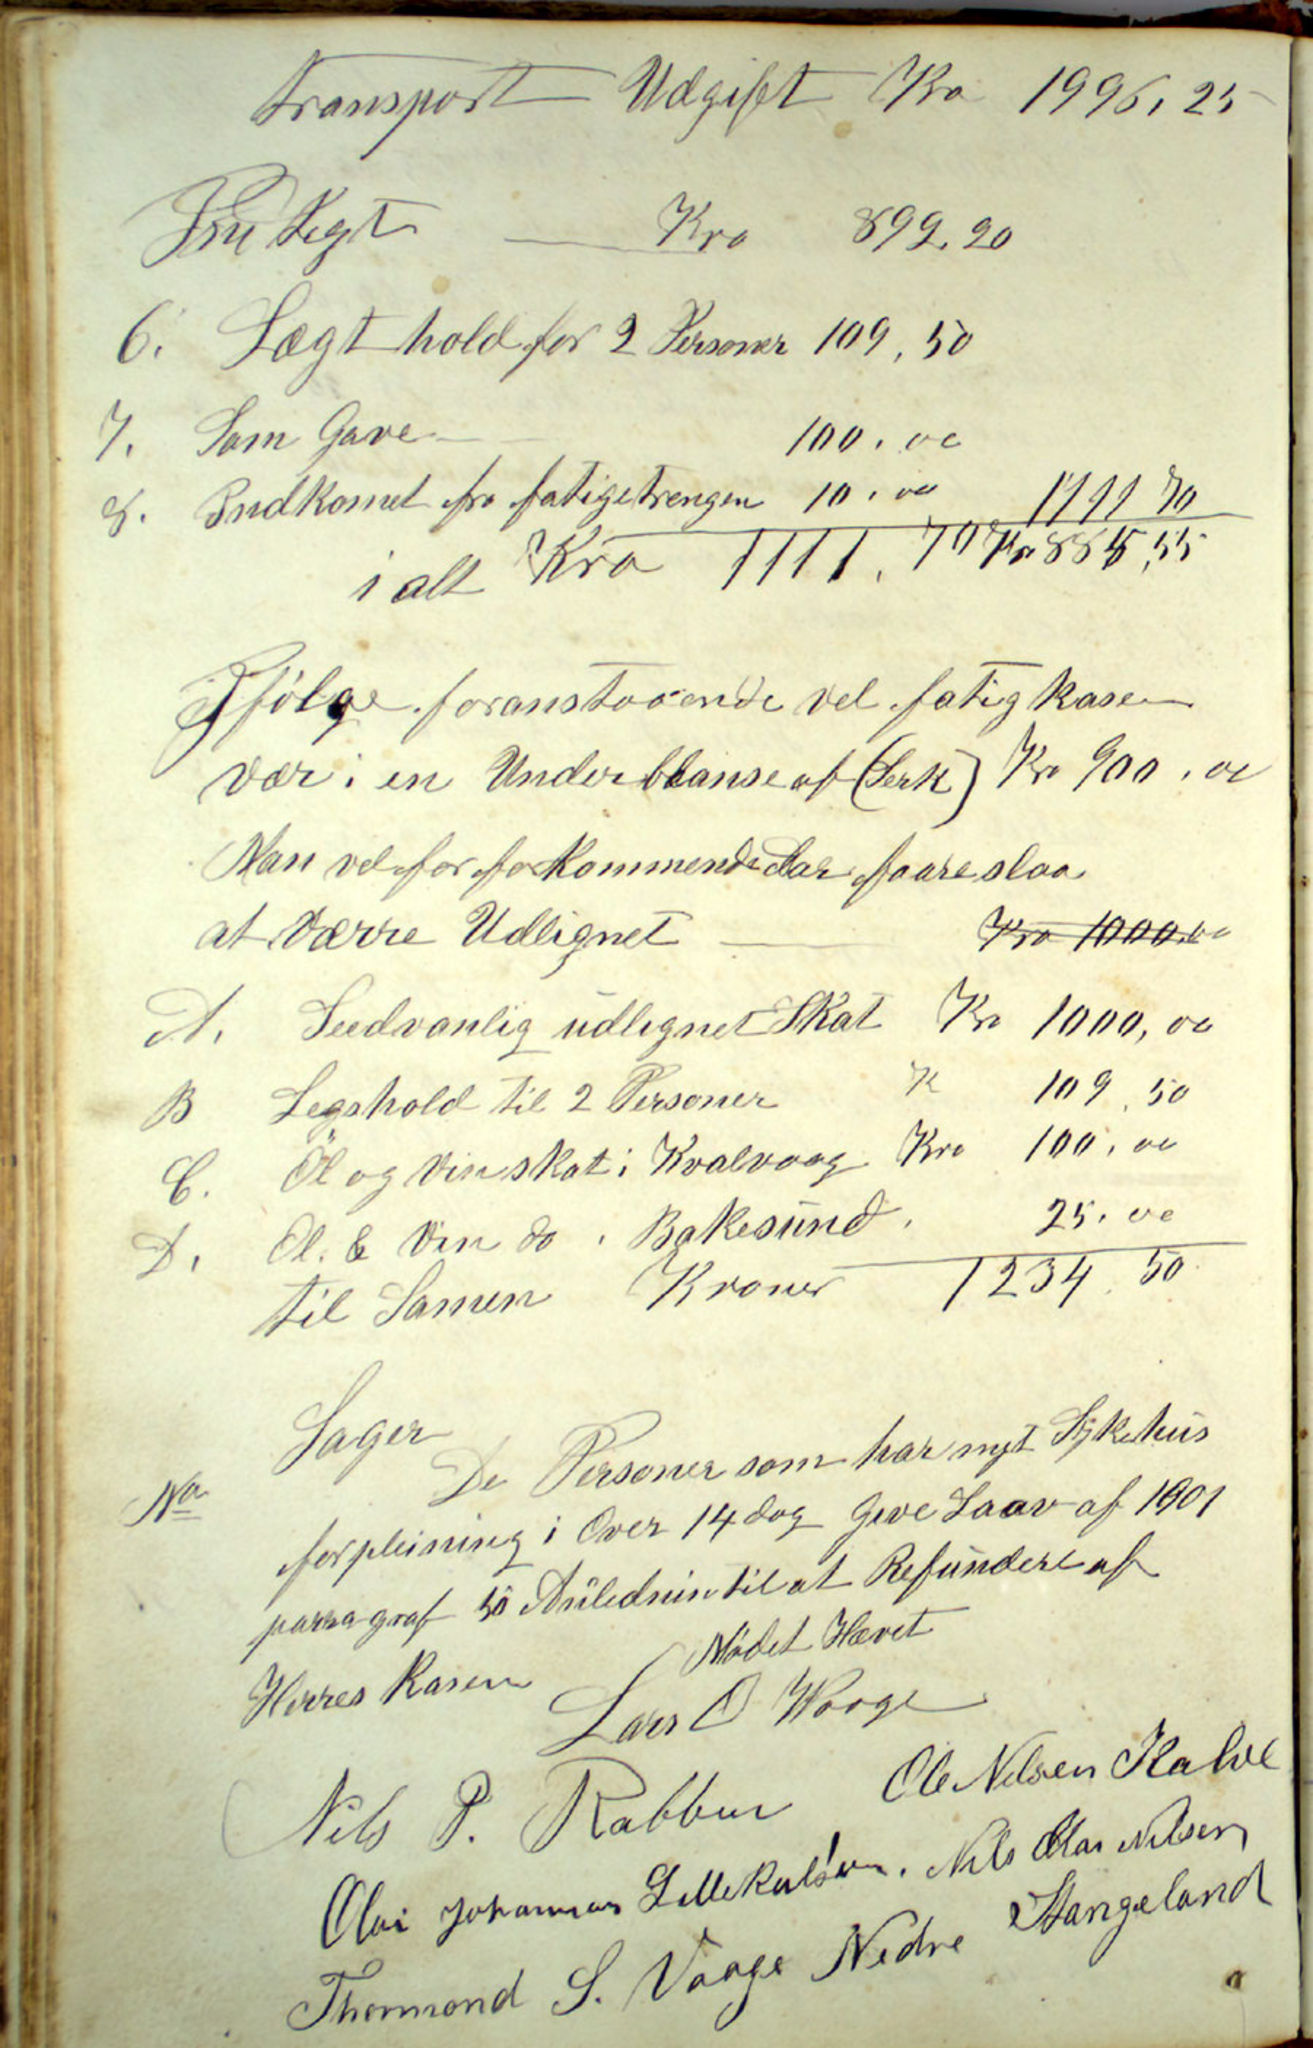 Transport Udgift Kro 1996,25
Kro 899.20
6. Lægt hold for 2 Personer 109,50
7. Som Gave 100.00
8. Indkomet fra fatigetrengen 10.00 1111 70
i alt Kro 1111.70 Kr 885,55
Ifölge foranstaaende vel fatigkasen
vær i en Underblanse af (Serk) Kro 900.00
Man vel for forkommende Aar faareslaa
at værre Udlignet Kro 1000.00
A. Seedvanlig udlignet Skat Kr 1000,00
B Legshold til 2 Personer K 109.50
C. Öl og Vin skat i Kvalvaag Kro 100.00
D. Öl. & Vin do. Bakesund. 25.00
til Samen Kroner 1234.50
Sager
No De Personer som har nyt Sykehus
forpleining i Over 14 dag Geve Laav af 1901
parragraf 50 Anlednin til at Refundere af
Herres Kasen Mödet Hævet
Lars O Waage
Nils P. Rabben Ole Nilsen Kalve
Olai Johannes Nils Olai Nilsen
Thormond S. Vaage Nedre Stangeland